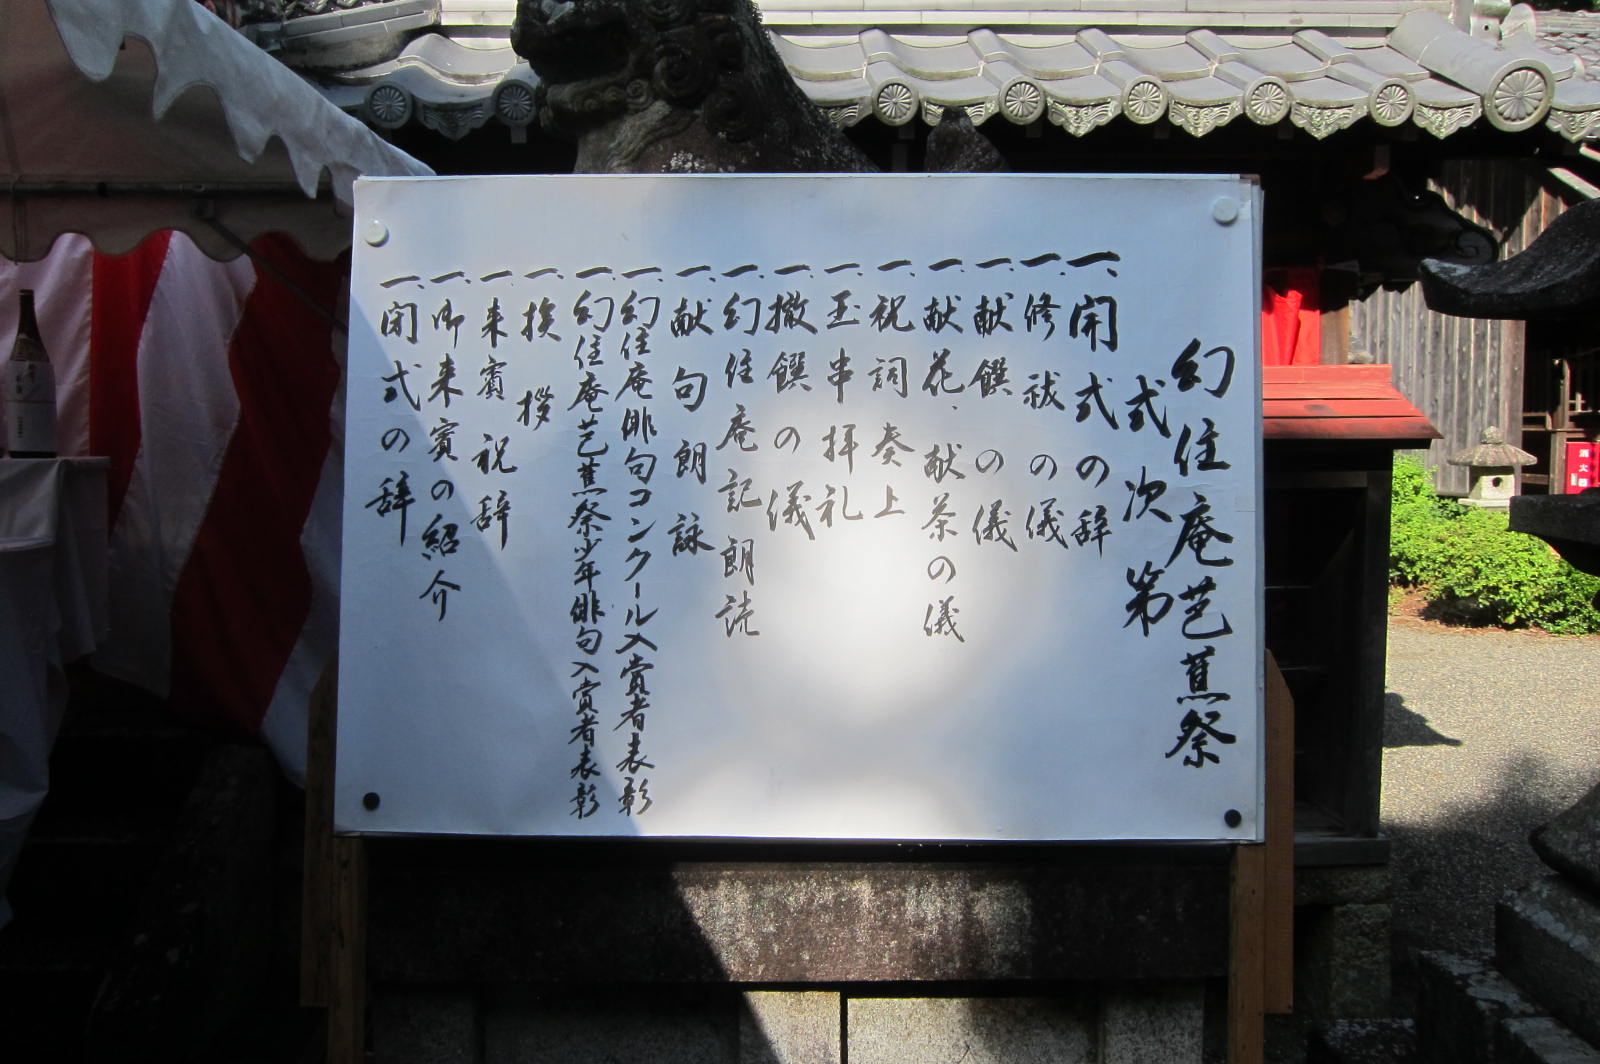 幻住庵芭蕉祭
式次第
一、開式の辞
一、修祓の儀
一、献饌の儀
一、献花、献茶の儀
一、祝詞奏上
一、玉串拝礼
一、撤饌の儀
一、幻住庵記朗読
一、献句朗詠
一、幻住庵俳句コンクール入賞者表彰
一、幻住庵芭蕉祭少年俳句入賞者表彰
一、挨拶
一、来賓祝辞
一、御来賓の紹介
一、閉式の辞
消火器